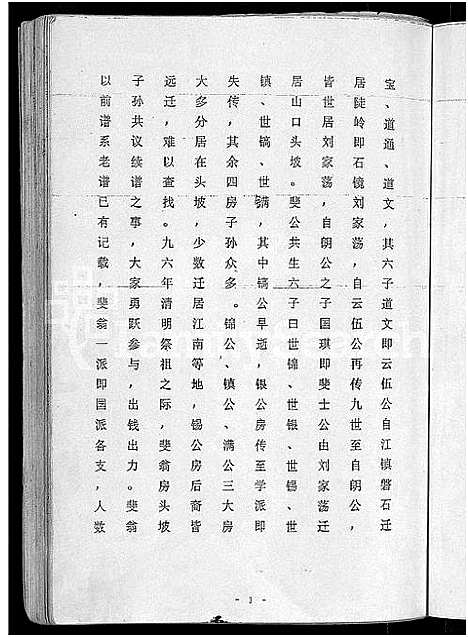 宝、道通、道文，其六子道文即云伍公自江镇磐石迁
居陡岭即石镜刘家荡，自云伍公再传九世至自朗公，
皆世居刘家荡，自朗公之子国琪即斐士公由刘家荡迁
居山口头坡。斐公共生六子曰世锦、世银、世锡、世
镇、世镐、世满，其中镐公早逝，银公房传至学派即
失传，其余四房子孙众多。锦公、镇公、满公三大房
大多分居在头坡，少数迁居江南等地，锡公房后裔皆
远迁，难以查找。九六年清明祭祖之际，斐翁房头坡
子孙共议续谱之事，大家勇跃参与，出钱出力。斐翁
以前谱系老谱已有记载，斐翁一派即国派各支，人数